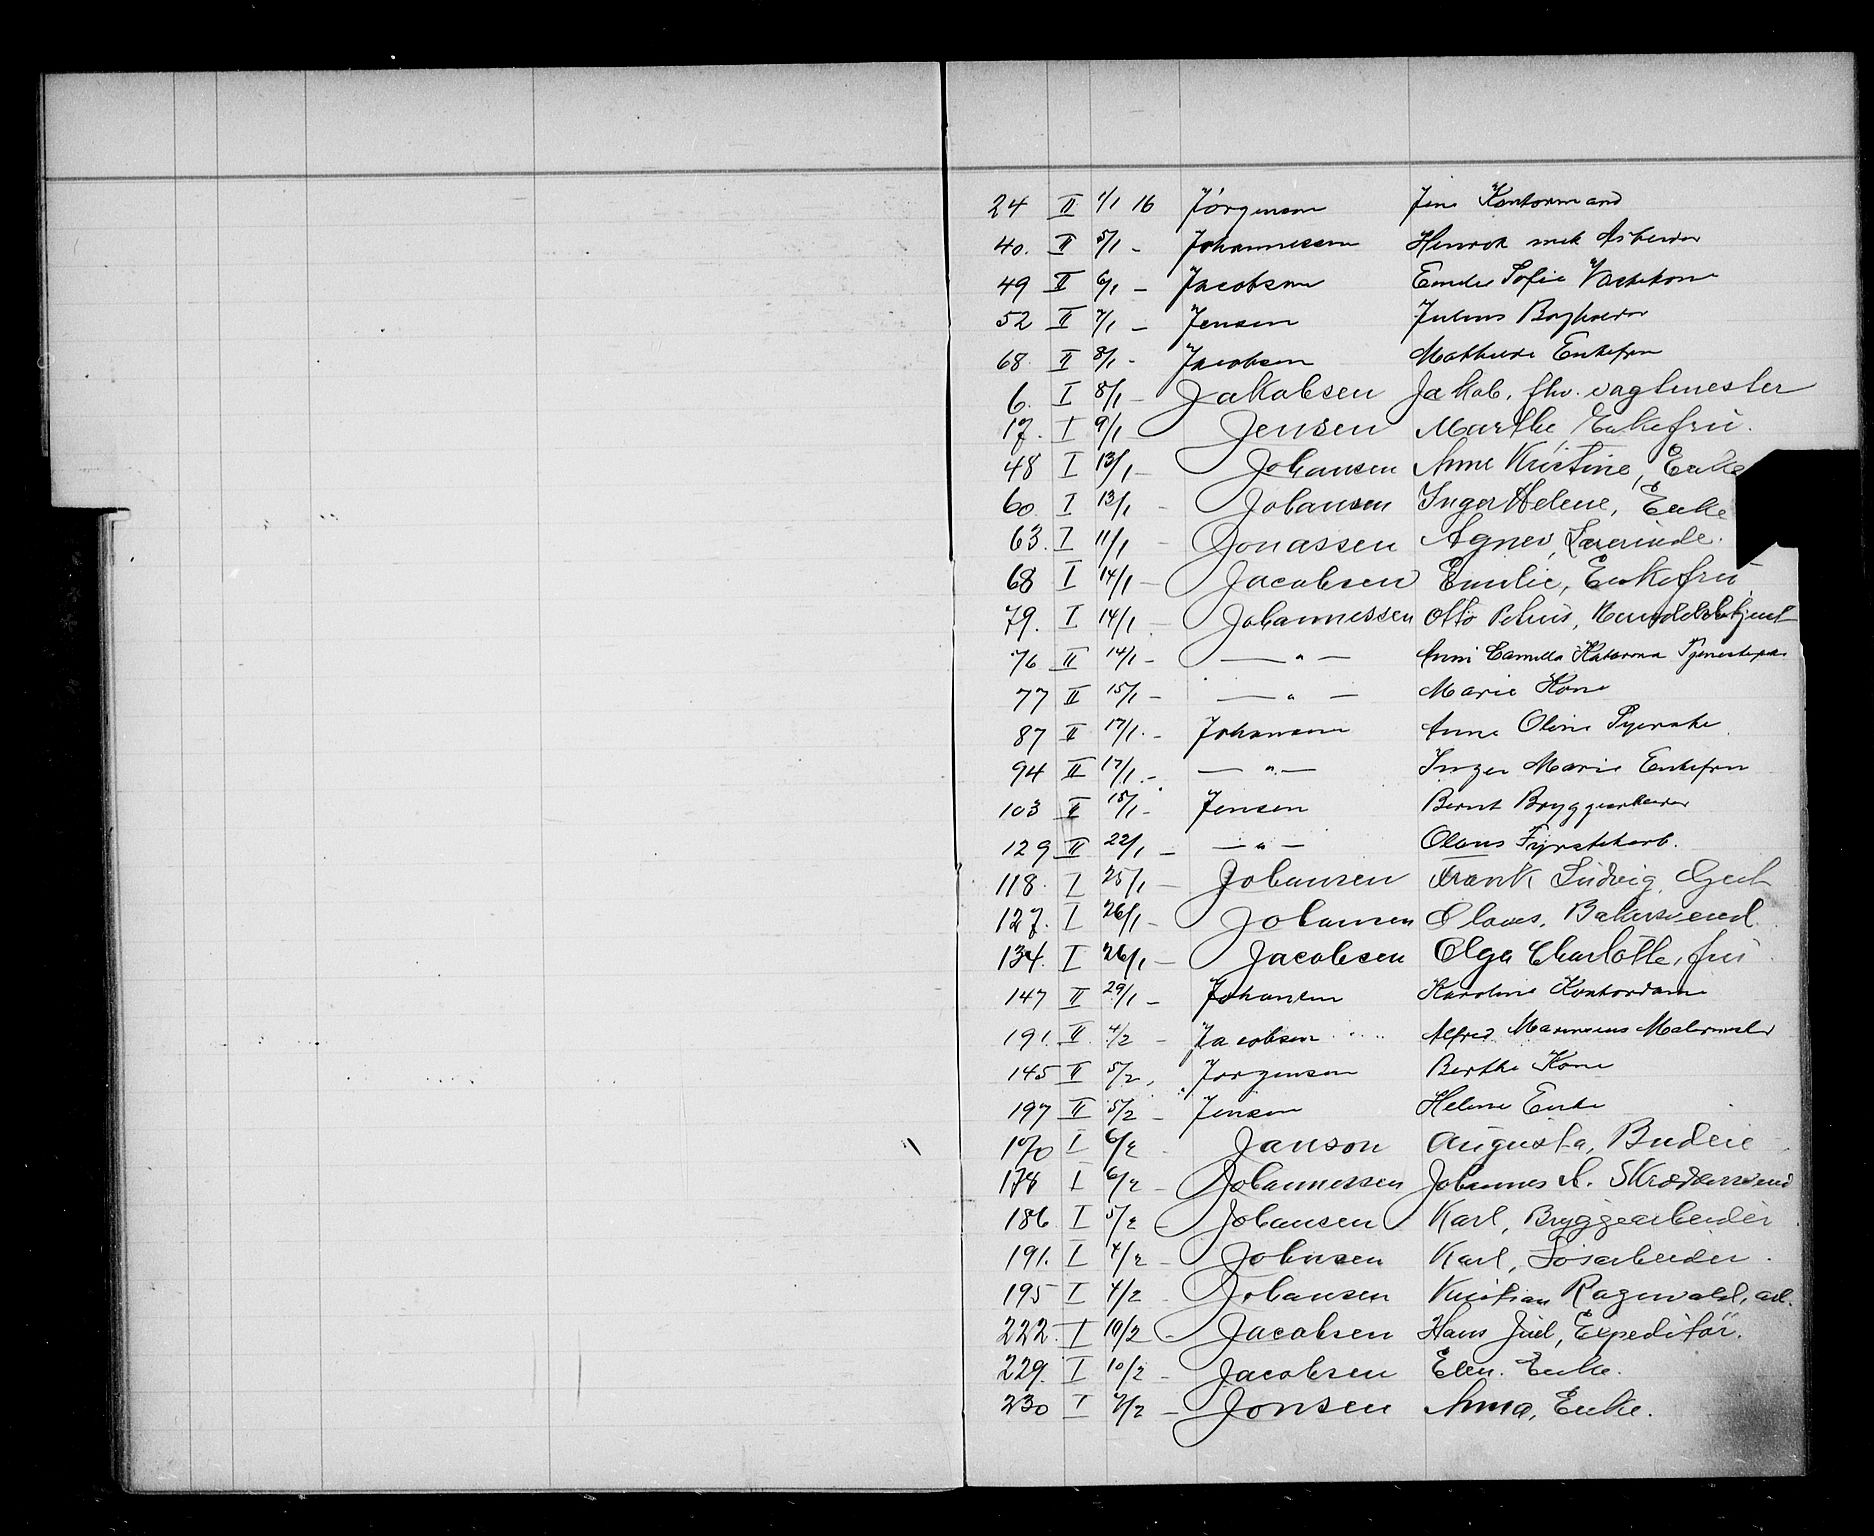 24 II 1/1 16 Jörgensen Jens Kontormand
40. II 5/1 - Johannessen Henrik
49 II 6/1 - Jacobsen Sofie
52 II 7/1 - Jensen Julius
68. II 8/1 - Jacobsen Mathilde Enkefru
6. I 8/1 - Jakobsen Jakob, fhv. vagtmester
17. I 9/1 Jensen Marthe, Enkefru.
48 I 13/1 - Johansen Anne Kristine, Enke
60 I 13/1 - Johansen Inger Helene, Enke
63. I 11/1 - Jonassen Agnes, Lærerinde.
68 I 14/1 - Jacobsen Emilie, Enkefru
79. I 14/1 - Johannessen Otto Petrus,
76 II 14/1 - — " — Anni Camilla Katarina
77 II 15/1 - — " — Marie Kone
87 II 17/1 - Johansen Anne Oline
94 II 17/1 - — " — Inger Marie Enkefru
103 II 18/1 - Jensen Bernt Bryggearbeider
129 II 22/1 - — " — Olaus Fyrstikarb.
118. I 25/1 - Johansen Frank Ludvig, Agent
127. I 26/1 - Johansen Olaus, Bakersvend.
134. I 26/1 - Jacobsen Olga Charlotte, fru
147 II 29/1 - Johansen Karoline Kontordame
191. II 4/2 - Jacobsen Alfred Malermester
145 II 5/2, Jorgensen Berthe Kone
197 II 5/2 - Jensen Helene Enke
170 I 6/2 Janson Augusta, Budeie
178 I 6/2 - Johannessen Johannes A. Skræddersvend
186 I 5/2 - Johansen Karl, Bryggearbeider
191. I 4/2 - Johnsen Karl, Løsarbeider.
195 I 4/2 - Johansen Kristian Ragnvald, arb.
222. I 10/2 - Jacobsen Hans Juel, Expeditör.
229. I 10/2 - Jacobsen Elen. Enke.
230 I 9/2 - Jonsen Anna, Enke.